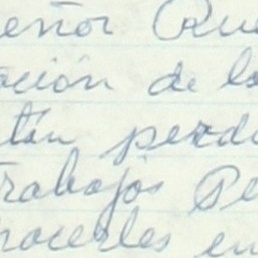 eñor Que
ación de la
tán perdi
Trabajos Pe
hacerles en